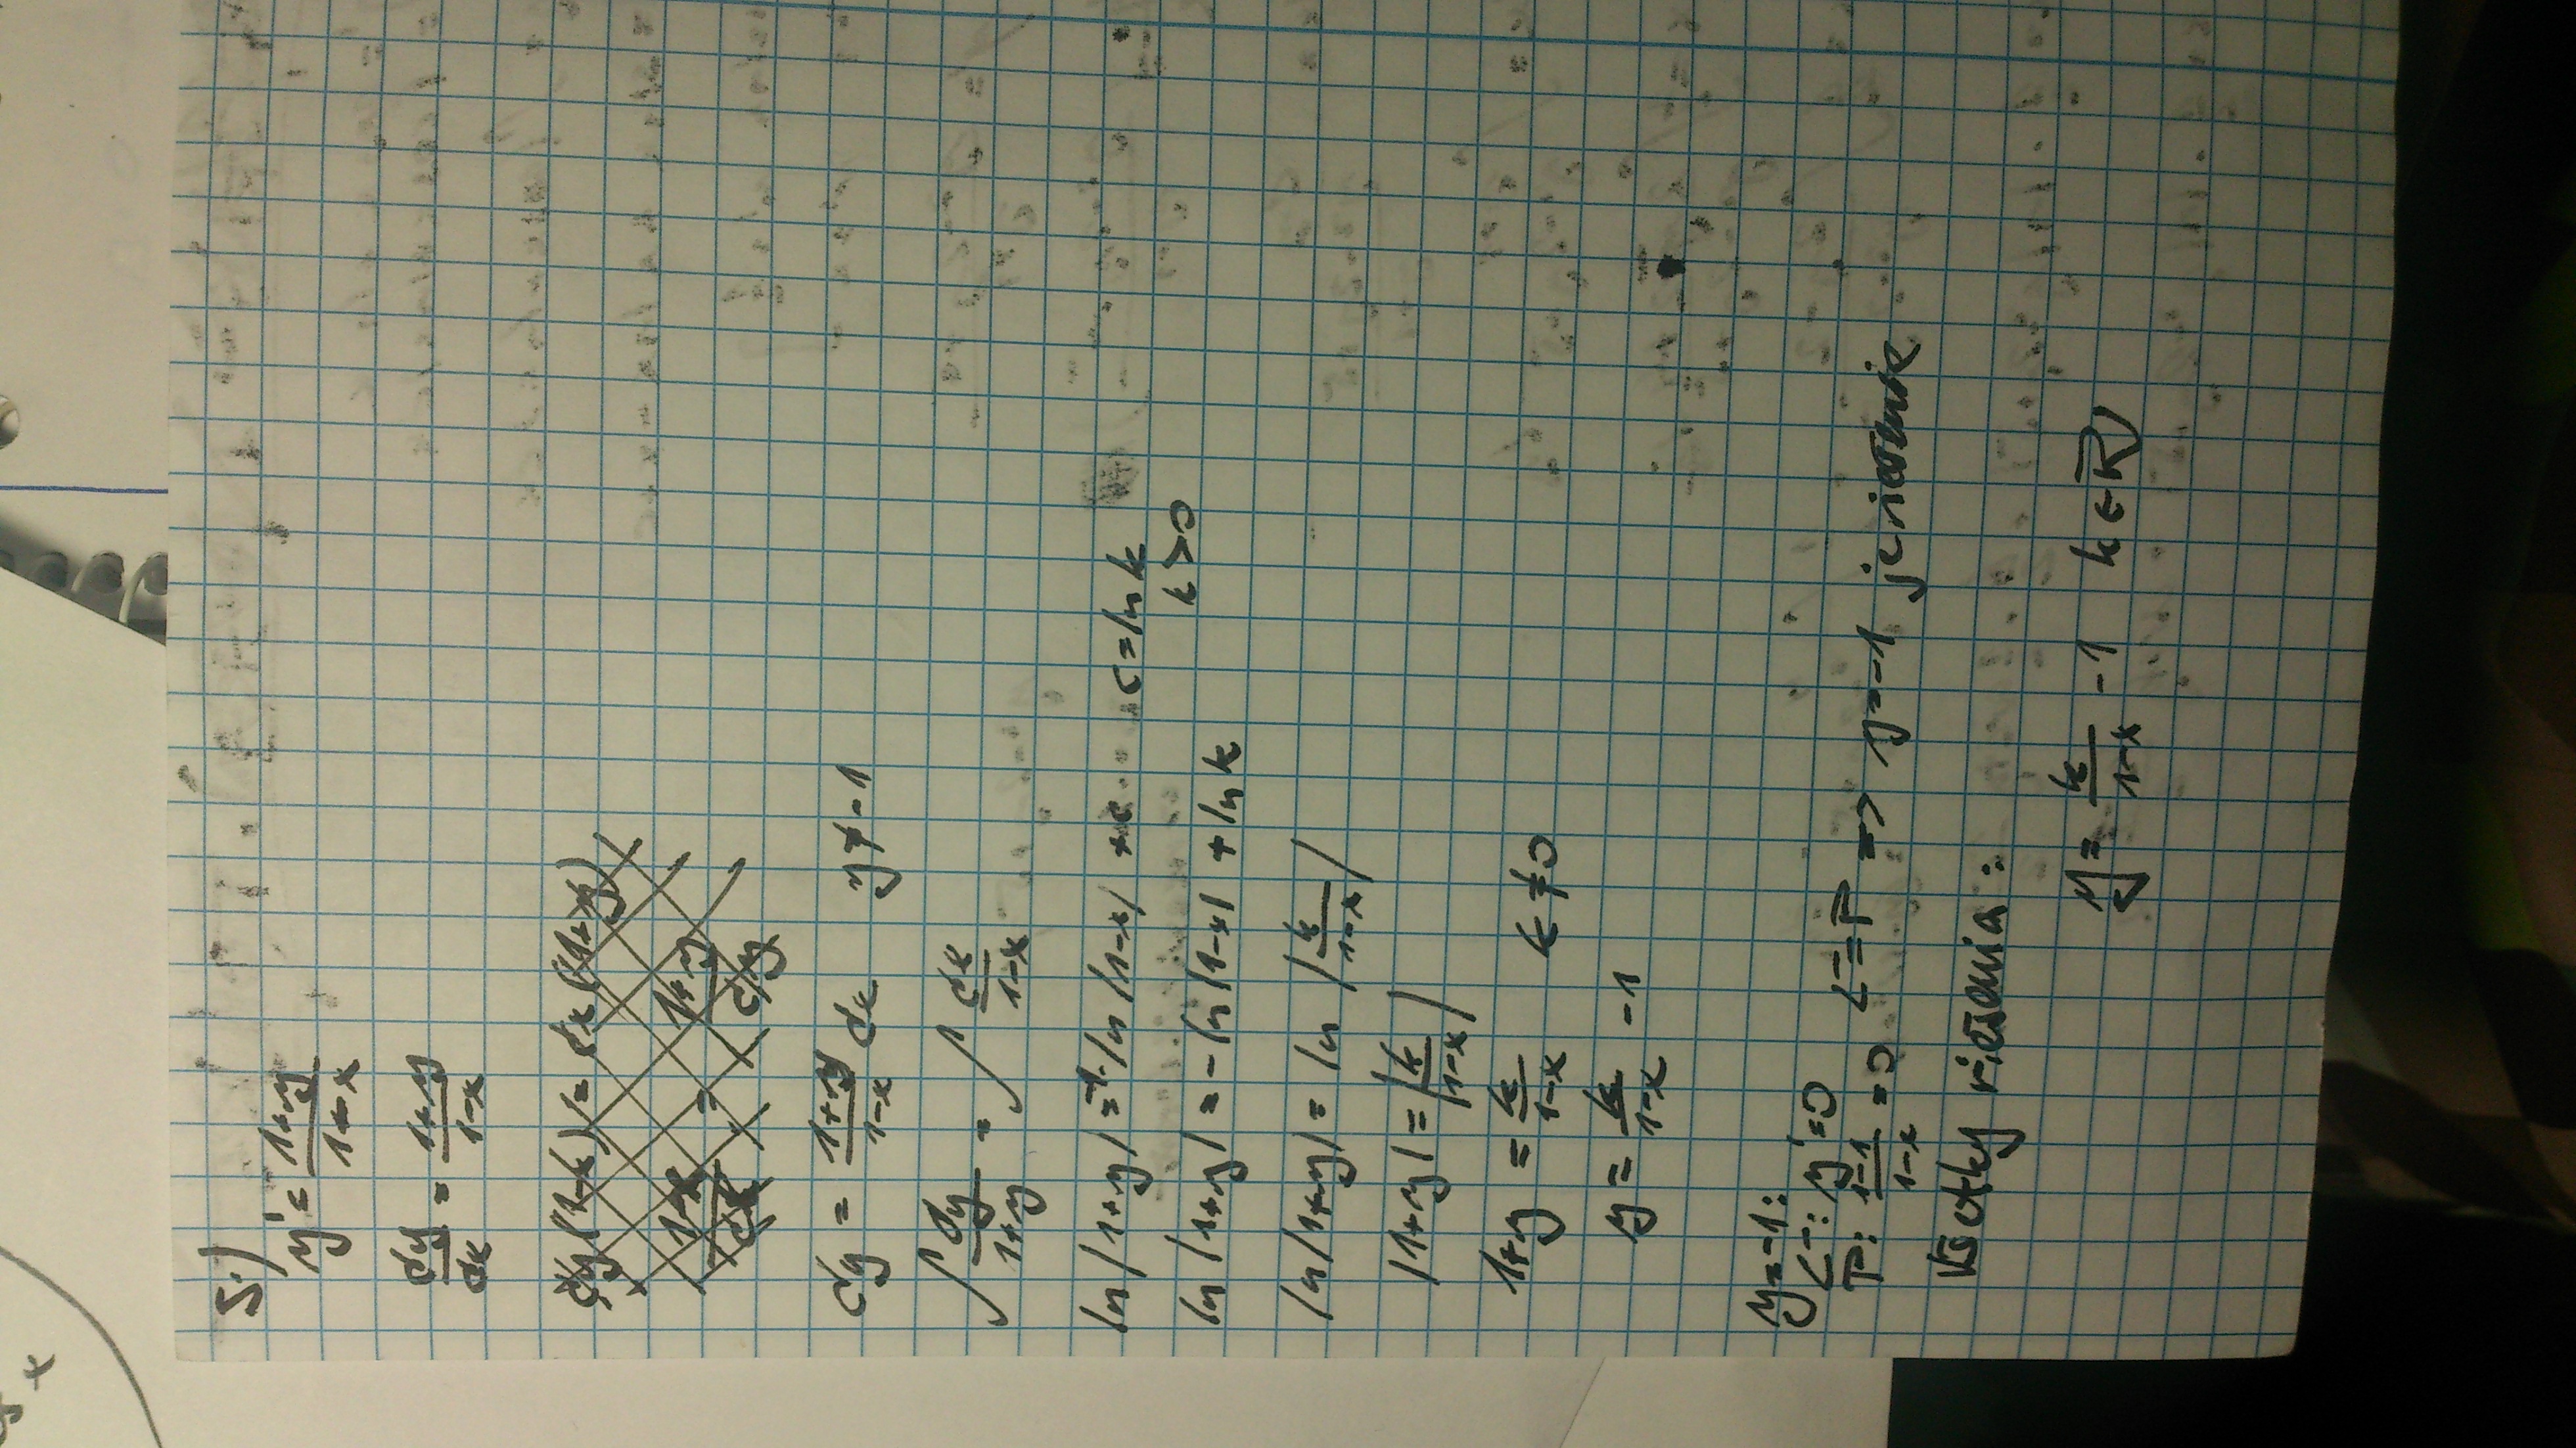 5.)
y' = (1+y)/(1-x)
dy/dx = (1+y)/(1-x)
dy(1-x) = dx(1+y)
(1-x)/dx = (1+y)/dy
dy = (1+y)/(1-x) dx y ≠ -1
∫ dy/(1+y) = ∫ dx/(1-x)
ln|1+y| = -1·ln|1-x| + c c = ln k
k > 0
ln|1+y| = -ln|1-x| + ln k
ln|1+y| = ln |k/(1-x)|
|1+y| = |k/(1-x)|
1+y = k/(1-x) k ≠ 0
y = k/(1-x) -1
y = -1:
Ľ: y' = 0
P: (1-1)/(1-x) = 0 Ľ = P => y = -1 je riešenie
Všetky riešenia:
y = k/(1-x) -1 k ∈ R